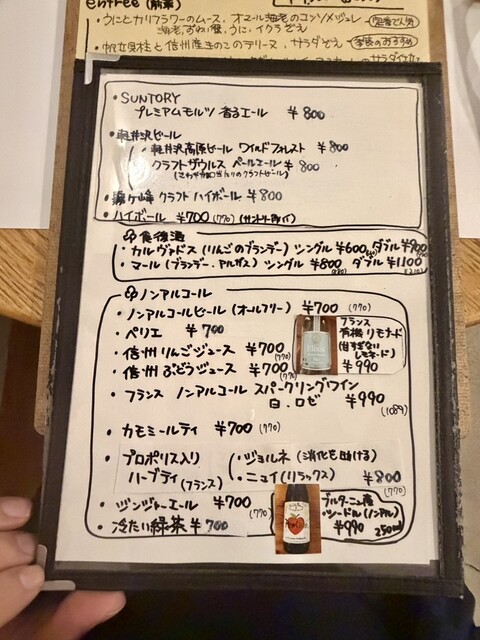 entrée (前菜)
・うにとカリフラワーのムース、オマール海老のコンソメジュレ
海老、ずわい蟹、うに、イクラぞえ
・帆立貝柱と信州産きのこのテリーヌ、サラダぞえ
季節のおすすめ
・SUNTORY
プレミアムモルツ 香るエール ¥800
・軽井沢ビール
軽井沢高原ビール ワイルドフォレスト ¥800
クラフトザウルス ペールエール ¥800
・霧ヶ峰 クラフト ハイボール ¥800
・ハイボール ¥700 (770)
食後酒
・カルヴァドス (りんごのブランデー) シングル ¥600 ダブル ¥900
・マール (ブランデー、アルザス) シングル ¥800 (880) ダブル ¥1100
ノンアルコール
・ノンアルコールビール (オールフリー) ¥700 (770)
・ペリエ ¥700
・信州 りんごジュース ¥700 (770)
・信州 ぶどうジュース ¥700 (770)
フランス
有機リモナード
(甘すぎない
レモネード)
¥990
・フランス ノンアルコール スパークリングワイン
白、ロゼ ¥990
(1089)
・カモミールティ ¥700 (770)
・プロポリス入り
ハーブティ (フランス)
・ジョルネ (消化を助ける)
・ニュイ (リラックス) ¥800
(770)
・ジンジャーエール ¥700 (770)
・冷たい緑茶 ¥700
ブルターニュ産
・シードル (ノンアル)
¥990 250ml